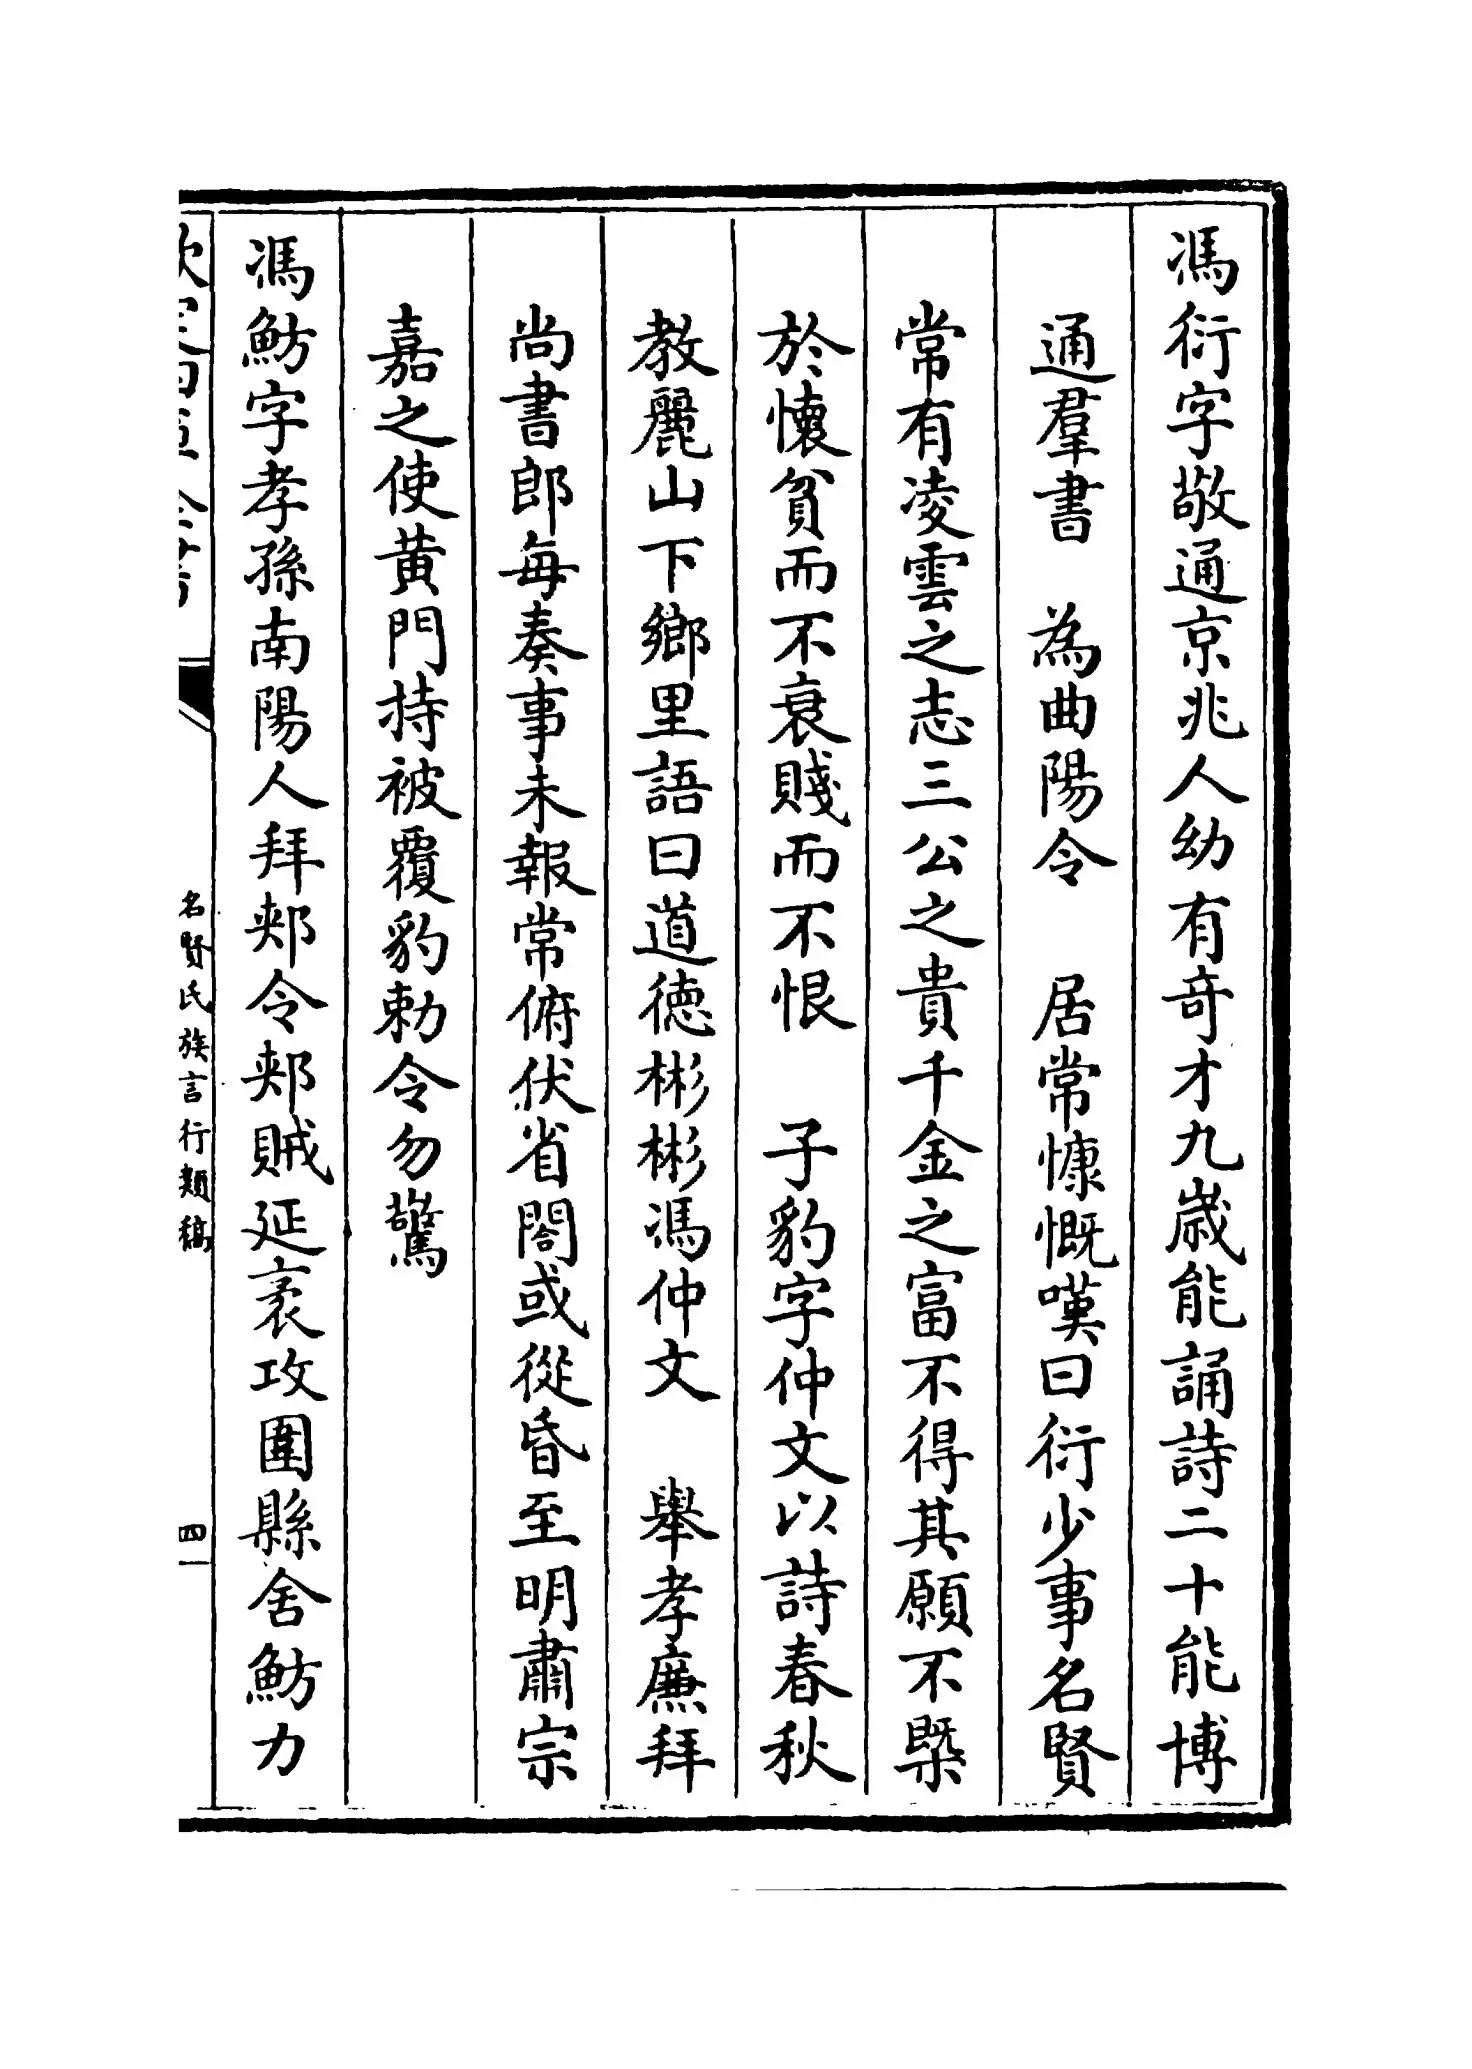 馮衍字敬通京兆人幼有竒才九嵗能誦詩二十能博
通羣書　為曲陽令　居常慷慨嘆曰衍少事名賢
常有凌雲之志三公之貴千金之富不得其願不槩
於懐貧而不衰賤而不恨　子豹字仲文以詩春秋
教麗山下鄉里語曰道徳彬彬馮仲文　舉孝廉拜
尚書郎每奏事未報常俯伏省閤或從昏至明肅宗
嘉之使黄門持被覆豹勅令勿驚
馮魴字孝孫南陽人拜郟令郟賊延裦攻圍縣舍魴力
名賢氏族言行類稿
四一